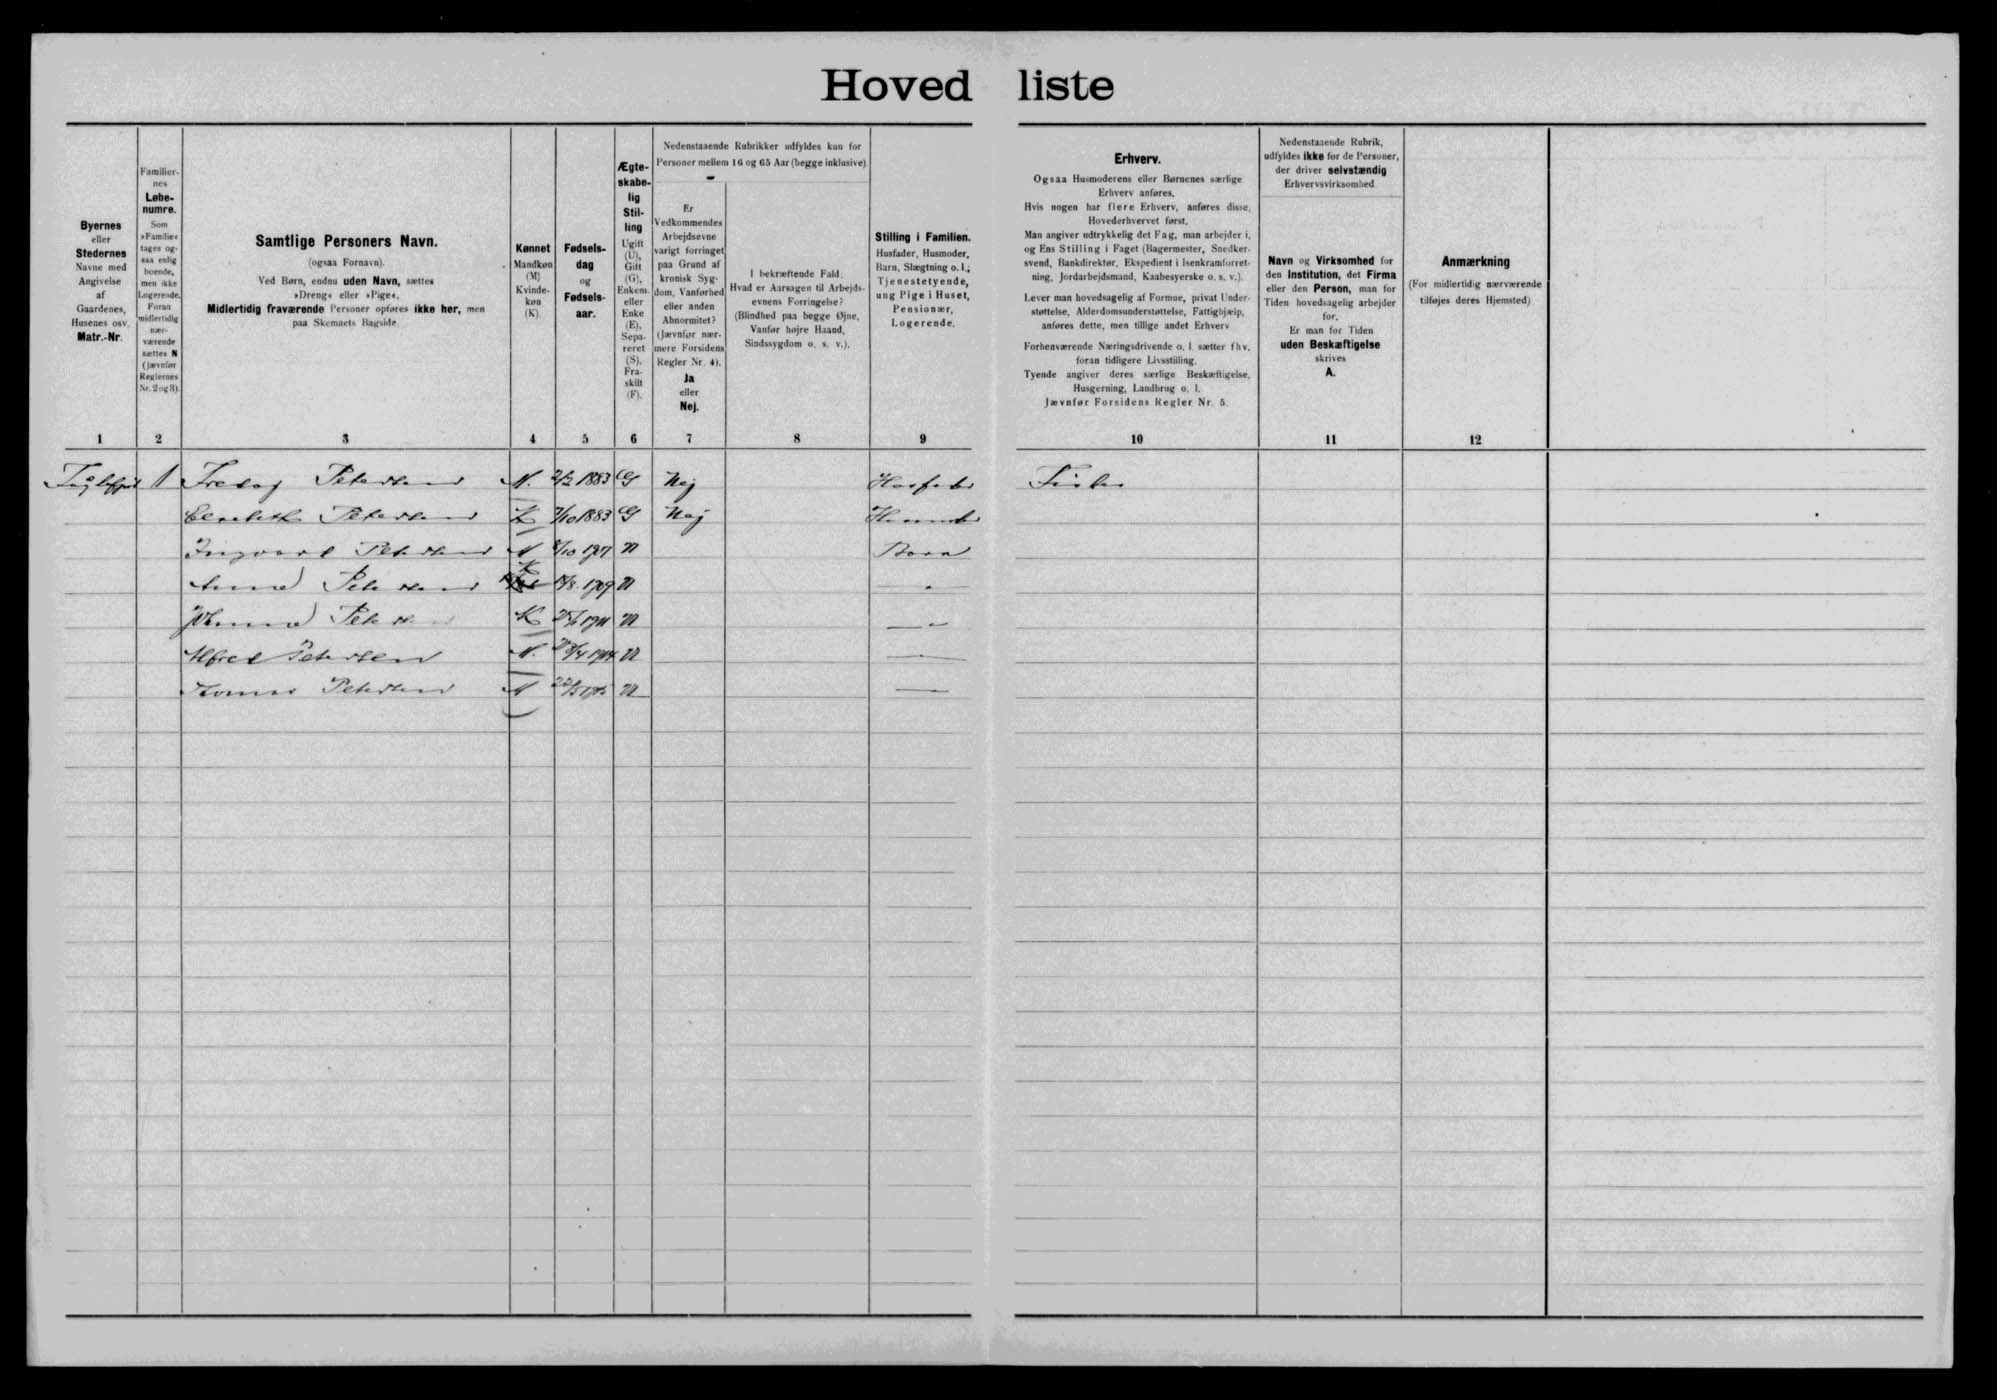 Hovedliste
Byernes
eller
Stedernes
Navne med
Angivelse
af
Gaardenes,
Husenes osv.
Matr.-Nr.
1
Familier-
nes
Løbe-
numre.
Som
»Familie«
tages og-
saa enlig
boende,
men ikke
Logerende.
Foran
midlertidig
nær-
værende
sættes N
(jævnfør
Reglernes
Nr. 2 og 3).
2
Samtlige Personers Navn.
(ogsaa Fornavn).
Ved Børn, endnu uden Navn, sættes
»Dreng« eller »Pige«.
Midlertidig fraværende Personer opføres ikke her, men
paa Skemaets Bagside.
3
Kønnet
Mandkøn
(M)
Kvinde-
køn
(K).
4
Fødsels-
dag
og
Fødsels-
aar.
5
Ægte-
skabe-
lig
Stil-
ling
Ugift
(U),
Gift
(G),
Enkem.
eller
Enke
(E),
Sepa-
reret
(S),
Fra-
skilt
(F).
6
Nedenstaaende Rubrikker udfyldes kun for
Personer mellem 16 og 65 Aar (begge inklusive).
Er
Vedkommendes
Arbejdsevne
varigt forringet
paa Grund af
kronisk Syg-
dom, Vanførhed
eller anden
Abnormitet?
(Jævnfør nær-
mere Forsidens
Regler Nr. 4).
Ja
eller
Nej.
7
I bekræftende Fald:
Hvad er Aarsagen til Arbejds-
evnens Forringelse?
(Blindhed paa begge Øjne,
Vanfør højre Haand,
Sindssygdom o. s. v.).
8
Stilling i Familien.
Husfader, Husmoder,
Barn, Slægtning o. l.;
Tjenestetyende,
ung Pige i Huset,
Pensionær,
Logerende.
9
Erhverv.
Ogsaa Husmoderens eller Børnenes særlige
Erhverv anføres.
Hvis nogen har flere Erhverv, anføres disse,
Hovederhvervet først.
Man angiver udtrykkelig det Fag, man arbejder i,
og Ens Stilling i Faget (Bagermester, Snedker-
svend, Bankdirektør, Ekspedient i Isenkramforret-
ning, Jordarbejdsmand, Kaabesyerske o. s. v.).
Lever man hovedsagelig af Formue, privat Under-
støttelse, Alderdomsunderstøttelse, Fattighjælp,
anføres dette, men tillige andet Erhverv
Forhenværende Næringsdrivende o. l. sætter fhv.
foran tidligere Livsstilling.
Tyende angiver deres særlige Beskæftigelse,
Husgerning, Landbrug o. l.
Jævnfør Forsidens Regler Nr. 5.
10
Nedenstaaende Rubrik,
udfyldes ikke for de Personer,
der driver selvstændig
Erhvervsvirksomhed
Navn og Virksomhed for
den Institution, det Firma
eller den Person, man for
Tiden hovedsagelig arbejder
for.
Er man for Tiden
uden Beskæftigelse
skrives
A.
11
Anmærkning
(For midlertidig nærværende
tilføjes deres Hjemsted)
12
1 Petersen M. 1883 G Nej Husfader Fisker
Elisabeth Petersen K 7/10 1883 G Nej
Ingvard Petersen M U Barn
Anna Petersen K 1909 U
Petersen K 1911 U
Alfred Petersen M. 1914 U
Petersen M U